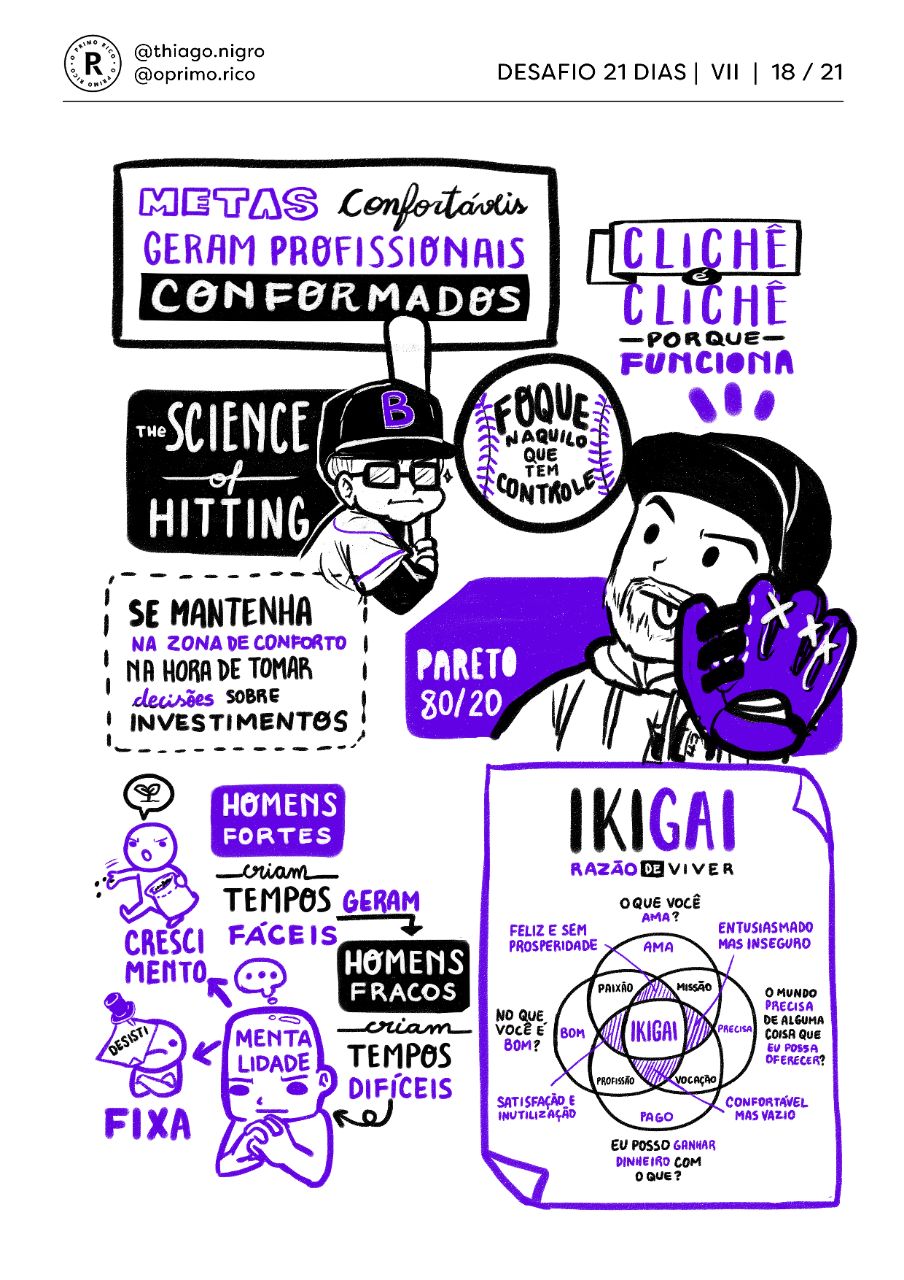 O PRIMO RICO • O PRIMO RICO •
R
@thiago.nigro
@oprimo.rico
DESAFIO 21 DIAS | VII | 18 / 21
METAS Confortáveis
GERAM PROFISSIONAIS
CONFORMADOS
CLICHÊ
é
CLICHÊ
PORQUE
FUNCIONA
THE SCIENCE
of
HITTING
B
FOQUE
NAQUILO
QUE
TEM
CONTROLE
SE MANTENHA
NA ZONA DE CONFORTO
NA HORA DE TOMAR
decisões SOBRE
INVESTIMENTOS
PARETO
80/20
HOMENS
FORTES
criam
TEMPOS GERAM
FÁCEIS
HOMENS
FRACOS
criam
TEMPOS
DIFÍCEIS
CRESCI
MENTO
MENTA
LIDADE
DESISTI
FIXA
IKIGAI
RAZÃO DE VIVER
O QUE VOCÊ
AMA?
FELIZ E SEM
PROSPERIDADE
ENTUSIASMADO
MAS INSEGURO
AMA
PAIXÃO
MISSÃO
NO QUE
VOCÊ É
BOM?
BOM
IKIGAI
PRECISA
O MUNDO
PRECISA
DE ALGUMA
COISA QUE
EU POSSA
OFERECER?
PROFISSÃO
VOCAÇÃO
SATISFAÇÃO E
INUTILIZAÇÃO
PAGO
CONFORTÁVEL
MAS VAZIO
EU POSSO GANHAR
DINHEIRO COM
O QUE?